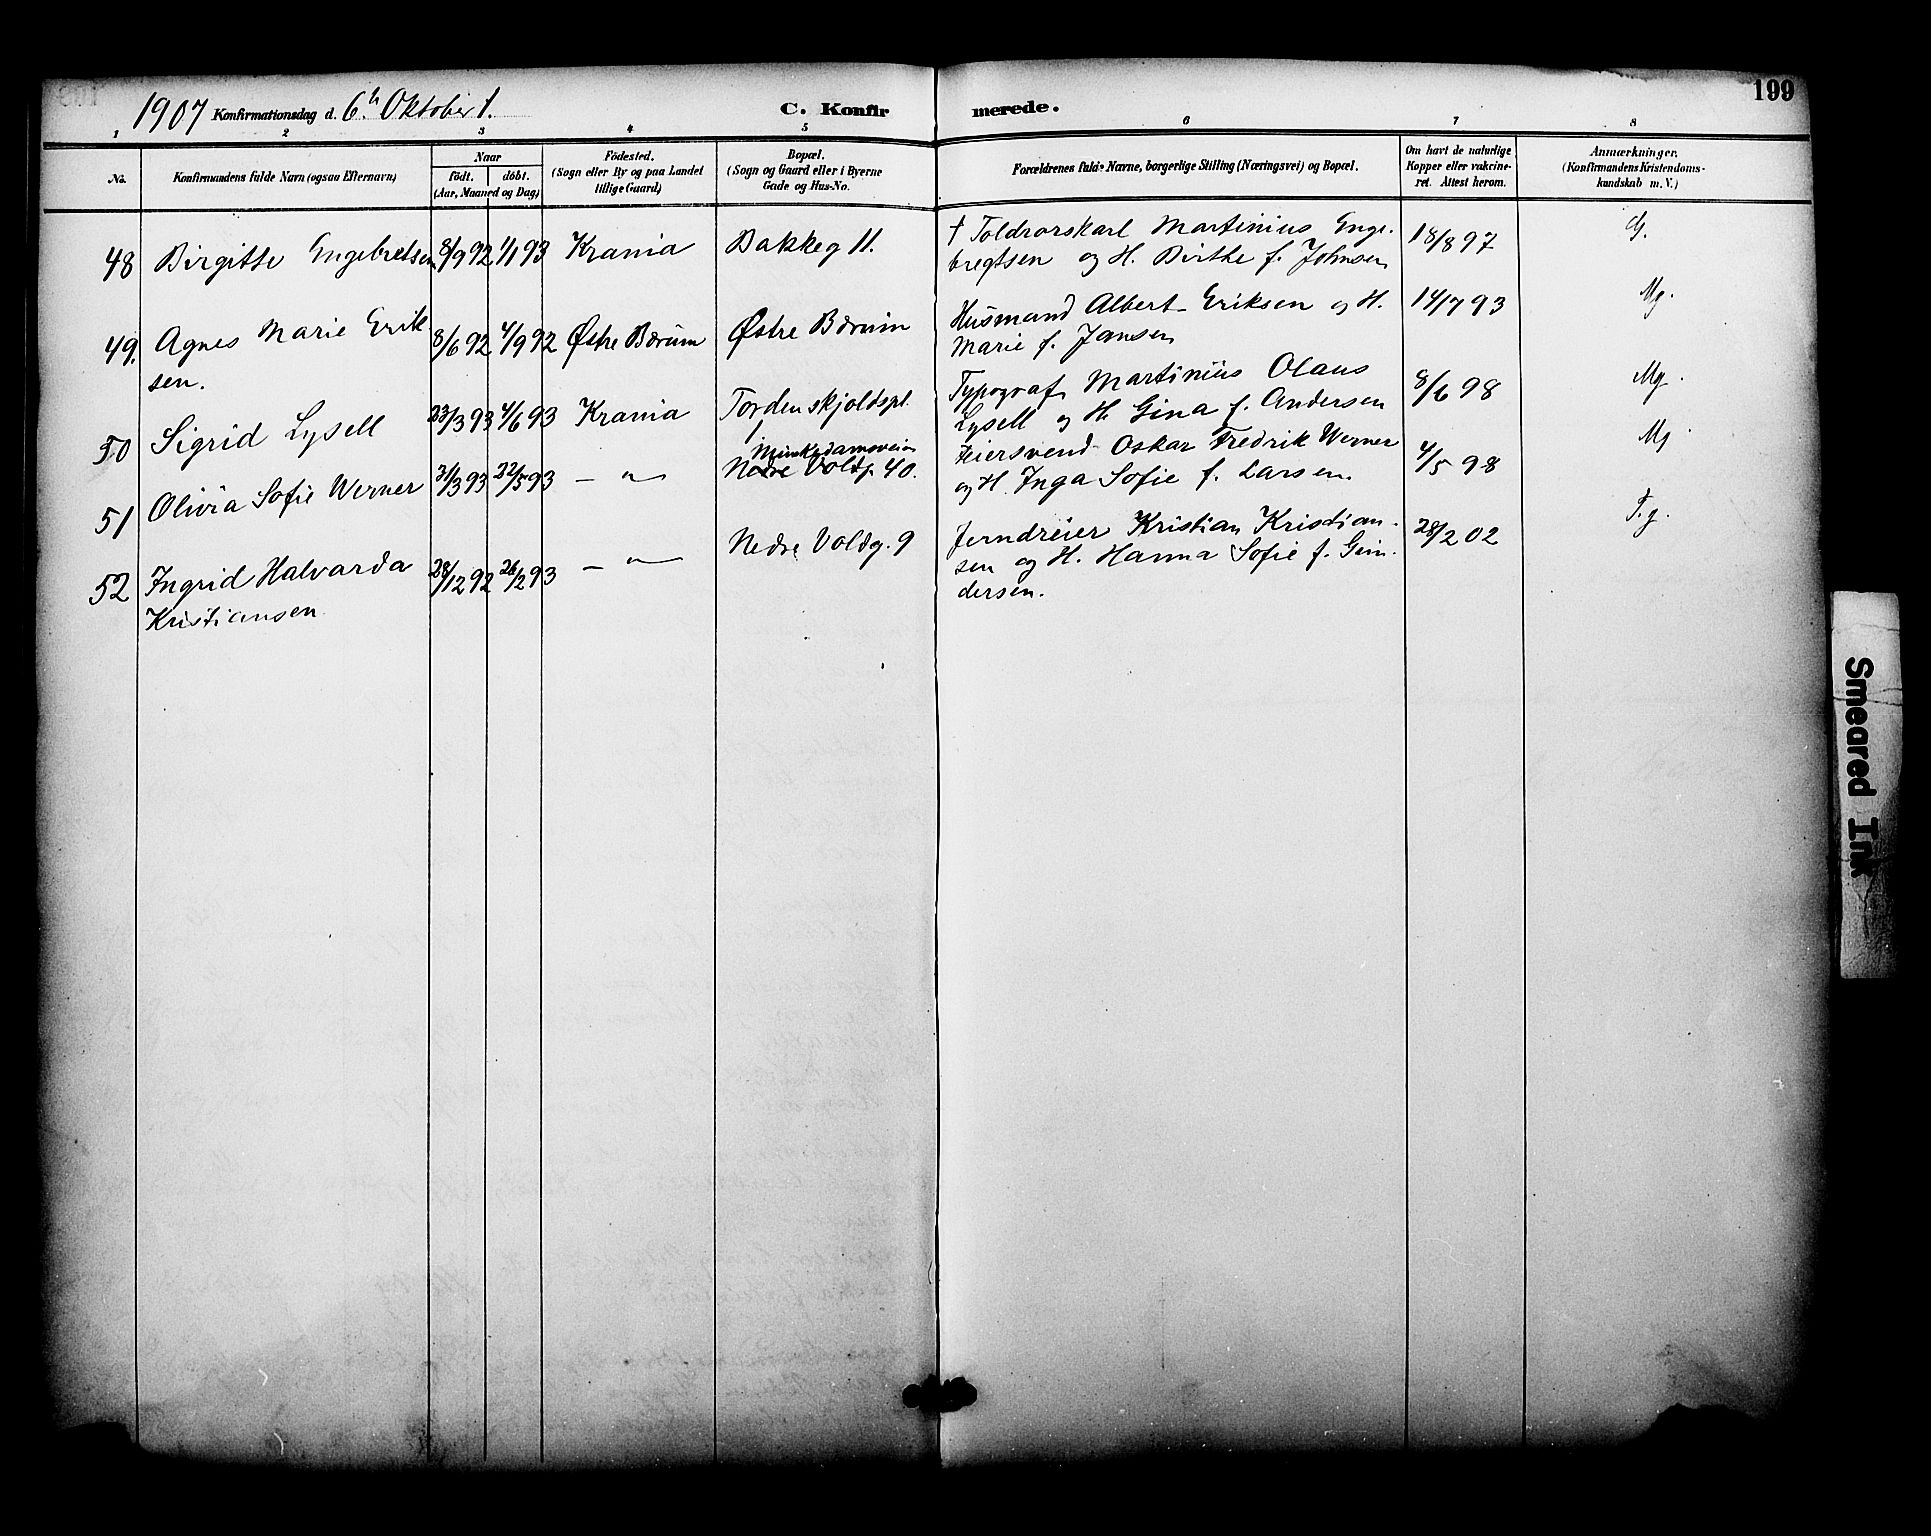 199
1907 Konfirmationsdag d. 6te Oktober
C. Konfirmerede.
1 2 3 4 5 6 7 8
No.
Konfirmandens fulde Navn (ogsaa Efternavn)
Naar
födt. döbt.
(Aar, Maaned og Dag)
Födested.
(Sogn eller By og paa Landet
tillige Gaard)
Bopæl.
(Sogn og Gaard eller i Byerne
Gade og Hus-No.
Forældrenes fulde Navne, borgerlige Stilling (Næringsvei) og Bopæl.
Om havt de naturlige
Kopper eller vakcine-
ret. Attest herom.
Anmærkninger.
(Konfirmandens Kristendoms-
kundskab m. V.)
48 Birgitte Engebretsen 8/9 92 1/1 93 Krania Bakkeg 11. † Toldrorskarl Martinius Enge- 18/8 97 G.
bregtsen og H. Birthe f. Johnsen
49. Agnes Marie Erik- 8/6 92 4/9 92 Østre Bærum Østre Bærum Husmand Albert Eriksen og H. 14/7 93 Mg.
sen. Marie f. Jansen
50 Sigrid Lysell 23/3 93 4/6 93 Krania Tordenskjoldspl. 1 Typograf Martinius Olaus 8/6 98 Mg.
Lysell og H. Gina f. Andersen
51 Olivia Sofie Werner 31/3 93 22/5 93 — " — Munkedamsveien
Nedre Voldg. 40. Feiersvend Oskar Fredrik Werner 4/5 98 Mg
og H. Inga Sofie f. Larsen.
52 Ingrid Halvarda 28/12 92 26/2 93 — " — Nedre Voldg. 9 Jerndreier Kristian Kristian- 28/2 02 T.g.
Kristiansen sen og H. Hanna Sofie f. Gun-
dersen.
Smeared Ink